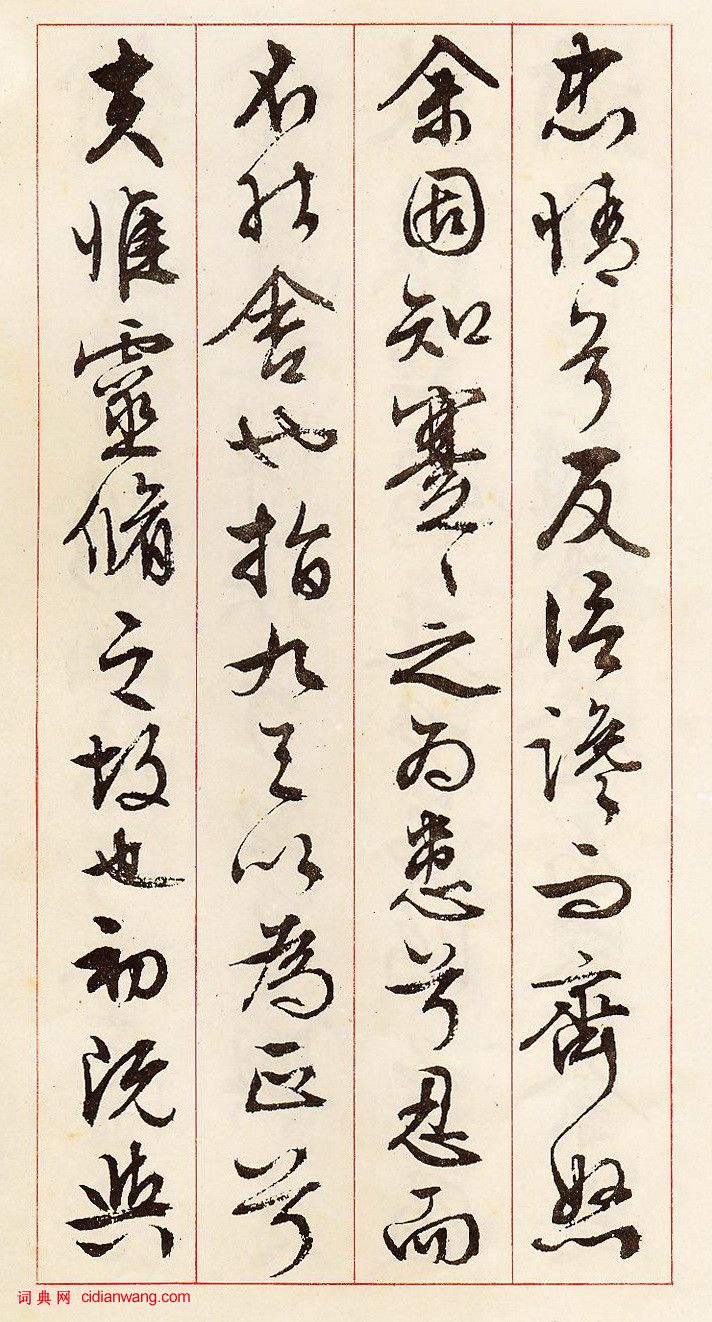 忠情兮反信讒而齊怒
余固知蹇〻之為患兮忍而
不能舍也指九天以為正兮
夫惟靈脩之故也初既與
词典网 cidianwang.com